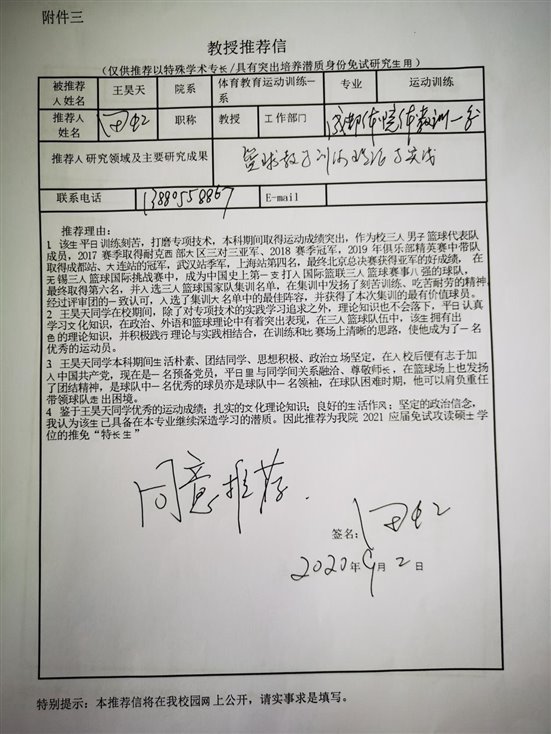 附件三
教授推荐信
（仅供推荐以特殊学术专长/具有突出培养潜质身份免试研究生用）
被推荐人姓名 王昊天 院系 体育教育运动训练一系 专业 运动训练
推荐人姓名 职称 教授 工作部门
推荐人研究领域及主要研究成果
联系电话 13880558867 E-mail
推荐理由：
1 该生平日训练刻苦，打磨专项技术，本科期间取得运动成绩突出，作为校三人男子篮球代表队
成员，2017 赛季取得耐克西部大区三对三亚军、2018 赛季冠军，2019 年俱乐部精英赛中带队
取得成都站、大连站的冠军，武汉站季军，上海站第四名，最终北京总决赛获得亚军的好成绩，在
无锡三人篮球国际挑战赛中，成为中国史上第一支打入国际篮联三人篮球赛事八强的球队，
最终取得第六名，并入选三人篮球国家队集训名单，在集训中发扬了刻苦训练、吃苦耐劳的精神，
经过评审团的一致认可，入选了集训大名单中的最佳阵容，并获得了本次集训的最有价值球员。
2 王昊天同学在校期间，除了对专项技术的实践学习追求之外，理论知识也不会落下，平日认真
学习文化知识，在政治、外语和篮球理论中有着突出表现，在三人篮球队伍中，该生拥有出
色的理论知识，并积极践行理论与实践相结合，在训练和比赛场上清晰的思路，使他成为了一名
优秀的运动员。
3 王昊天同学本科期间生活朴素、团结同学、思想积极、政治立场坚定，在入校后便有志于加
入中国共产党，现在是一名预备党员，平日里与同学间关系融洽、尊敬师长，在篮球场上也发扬
了团结精神，是球队中一名优秀的球员亦是球队中一名领袖，在球队困难时期，他可以肩负重任
带领球队走出困境。
4 鉴于王昊天同学优秀的运动成绩；扎实的文化理论知识；良好的生活作风；坚定的政治信念，
我认为该生已具备在本专业继续深造学习的潜质。因此推荐为我院 2021 应届免试攻读硕士学
位的推免“特长生”
同意推荐.
签名：
2020 年 9 月 2 日
特别提示：本推荐信将在我校园网上公开，请实事求是填写。